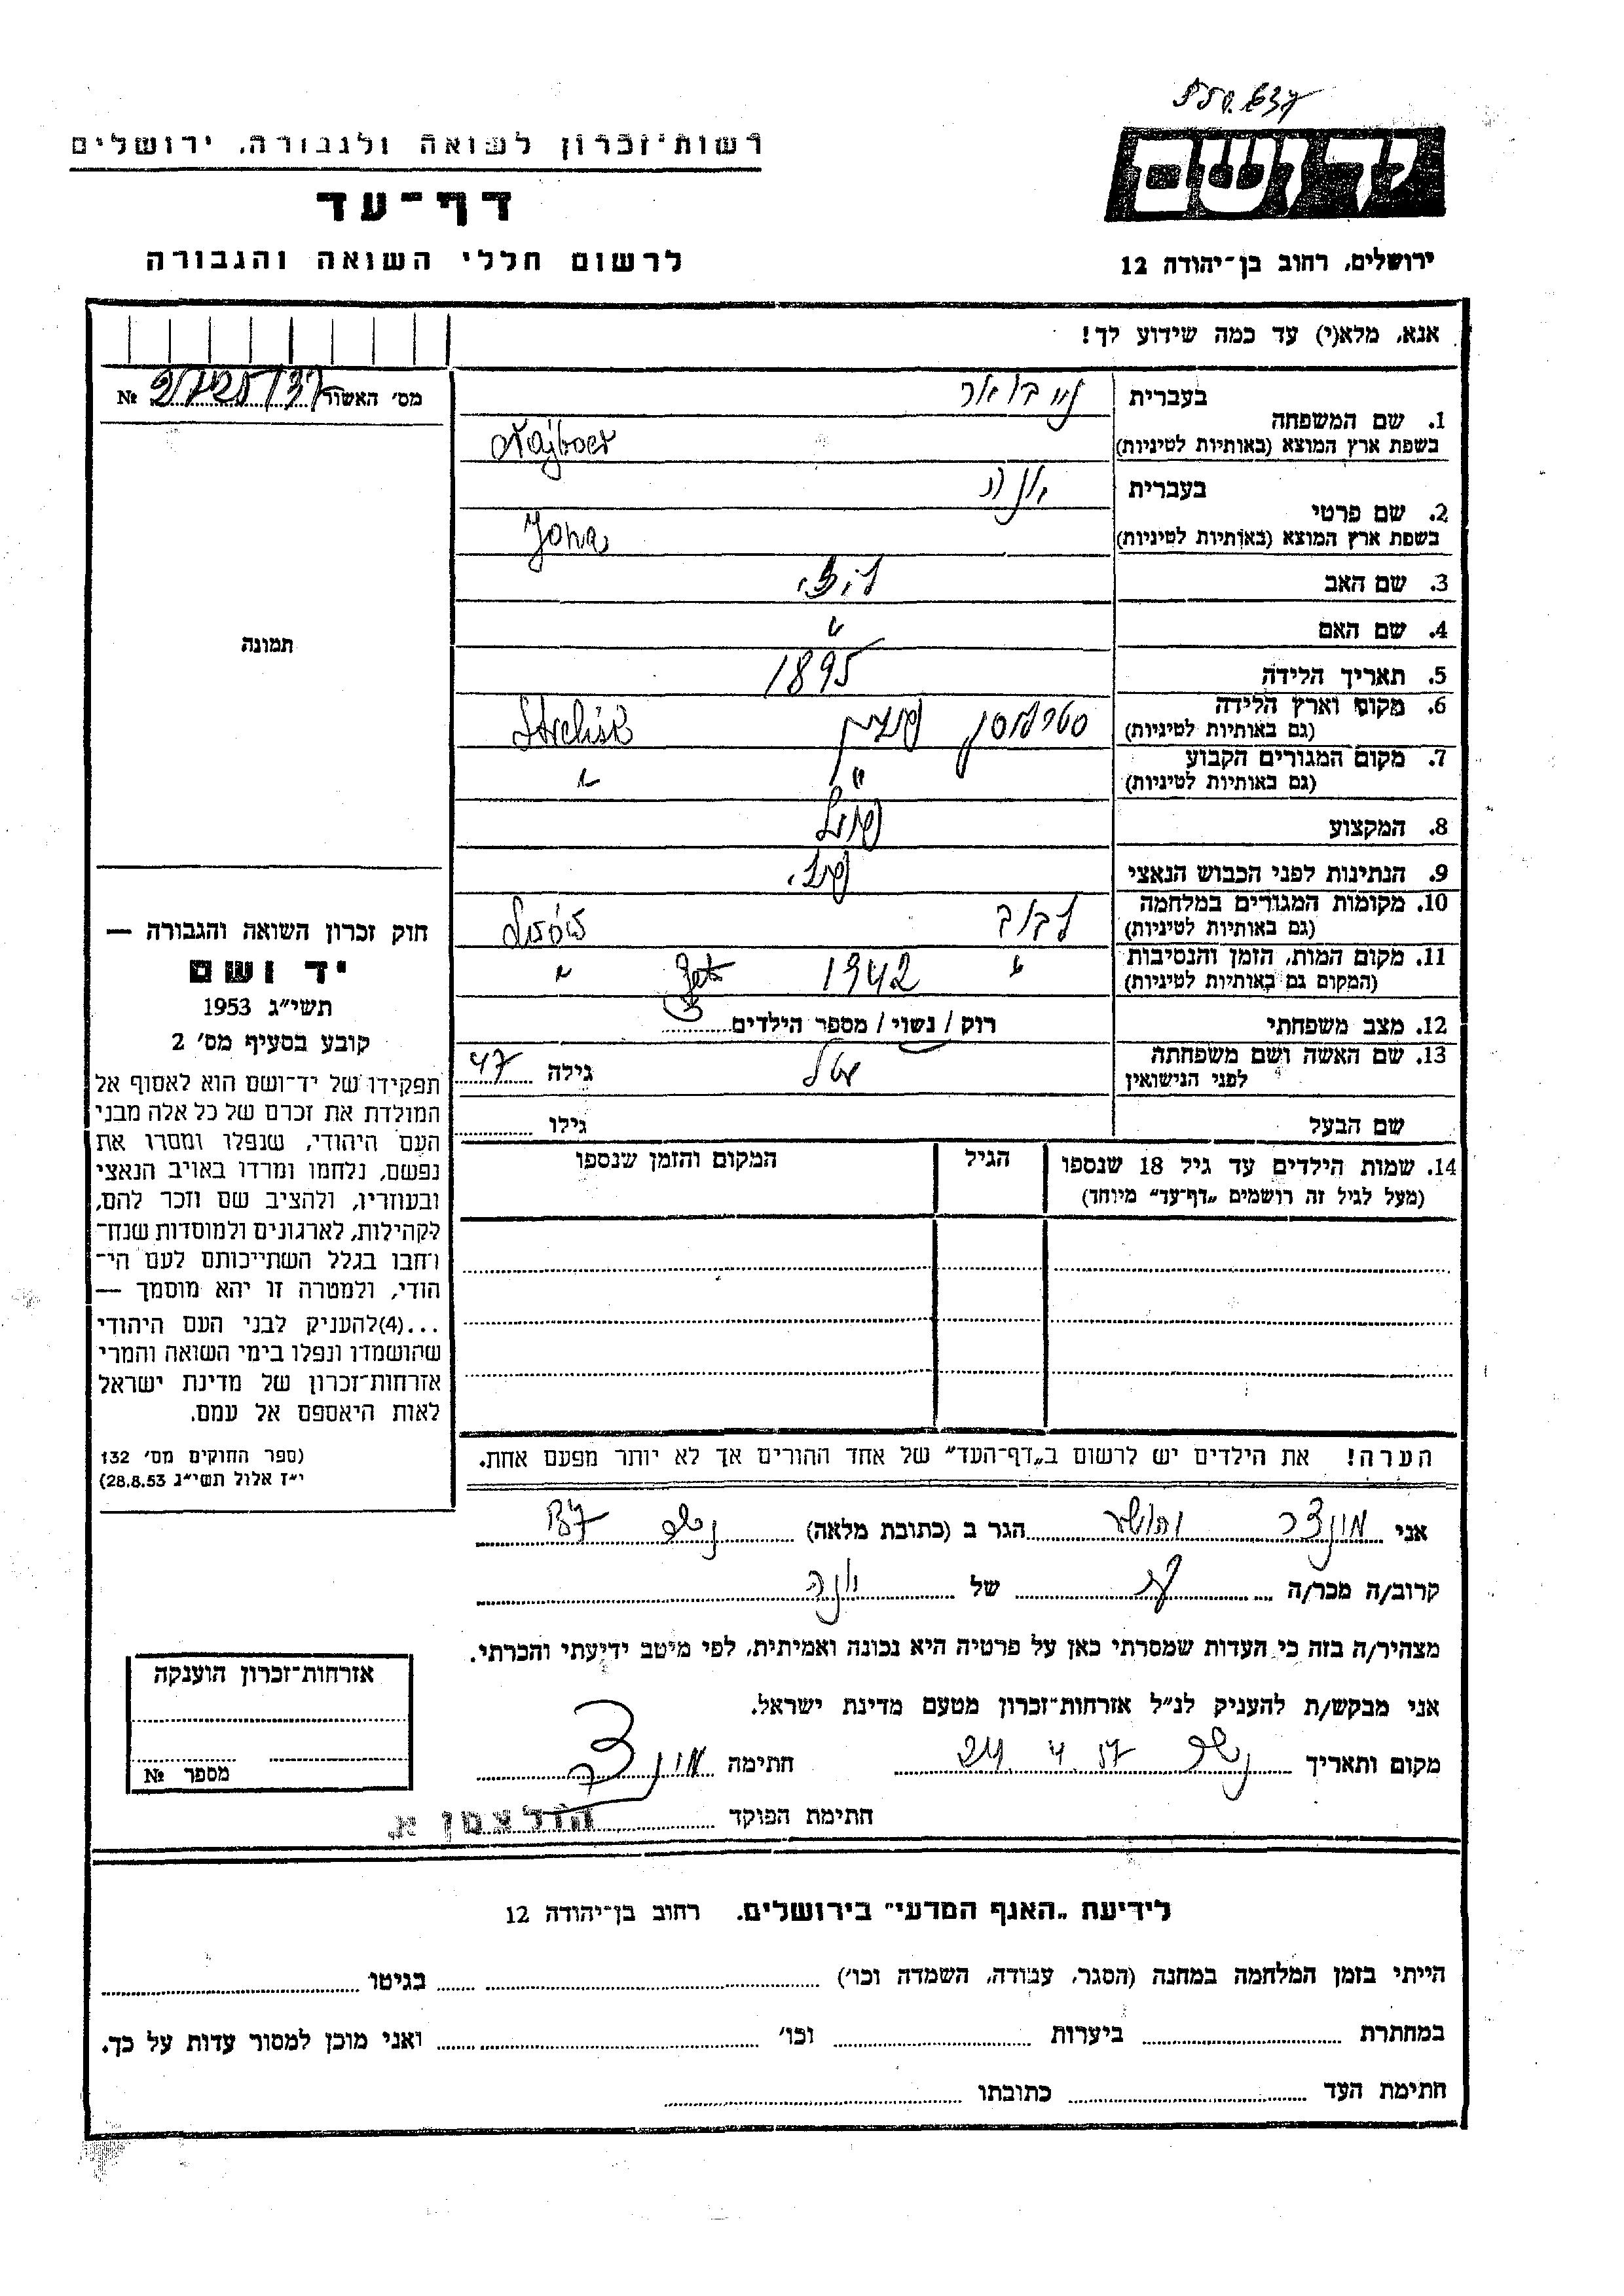 רשות־זכרון לשואה ולגבורה, ירושלים
דף־עד
לרשום חללי השואה והגבורה
ירושלים, רחוב בן־יהודה 12
אנא, מלא(י) עד כמה שידוע לך!
מס׳ האשור №
1. שם המשפחה
בעברית
בשפת ארץ המוצא (באותיות לטיניות) Najboer
2. שם פרטי
בעברית יונה
בשפת ארץ המוצא (באותיות לטיניות) Jona
3. שם האב
4. שם האם
5. תאריך הלידה 1895
6. מקום וארץ הלידה
(גם באותיות לטיניות) Strelisk
7. מקום המגורים הקבוע " "
(גם באותיות לטיניות)
8. המקצוע
9. הנתינות לפני הכבוש הנאצי
10. מקומות המגורים במלחמה לבוב
(גם באותיות לטיניות)
11. מקום המות, הזמן והנסיבות " 1942 "
(המקום גם באותיות לטיניות)
12. מצב משפחתי רוק / נשוי / מספר הילדים 3
13. שם האשה ושם משפחתה
לפני הנישואין גילה 47
שם הבעל גילו
14. שמות הילדים עד גיל 18 שנספו הגיל המקום והזמן שנספו
(מעל לגיל זה רושמים „דף־עד״ מיוחד)
הערה! את הילדים יש לרשום ב„דף־העד״ של אחד ההורים אך לא יותר מפעם אחת.
תמונה
חוק זכרון השואה והגבורה —
יד ושם
תשי״ג 1953
קובע בסעיף מס׳ 2
תפקידו של יד־ושם הוא לאסוף אל
המולדת את זכרם של כל אלה מבני
העם היהודי, שנפלו ומסרו את
נפשם, נלחמו ומרדו באויב הנאצי
ובעוזריו, ולהציב שם וזכר להם,
לקהילות, לארגונים ולמוסדות שנח־
רחבו בגלל השתייכותם לעם הי־
הודי, ולמטרה זו יהא מוסמך —
...(4)להעניק לבני העם היהודי
שהושמדו ונפלו בימי השואה והמרי
אזרחות־זכרון של מדינת ישראל
לאות היאספם אל עמם.
(ספר החוקים מס׳ 132
י״ז אלול תשי״ג 28.8.53)
אני מונדר הגר ב (כתובת מלאה) נשר
קרוב/ה מכר/ה של יונה
מצהיר/ה בזה כי העדות שמסרתי כאן על פרטיה היא נכונה ואמיתית, לפי מיטב ידיעתי והכרתי.
אני מבקש/ת להעניק לנ״ל אזרחות־זכרון מטעם מדינת ישראל.
מקום ותאריך נשר 24 4 57 חתימה
חתימת הפוקד הולצמן א.
אזרחות־זכרון הוענקה
מספר №
לידיעת „האגף המדעי״ בירושלים, רחוב בן־יהודה 12
הייתי בזמן המלחמה במחנה (הסגר, עבודה, השמדה וכו׳) בגיטו
במחתרת ביערות וכו׳ ואני מוכן למסור עדות על כך.
חתימת העד כתובתו